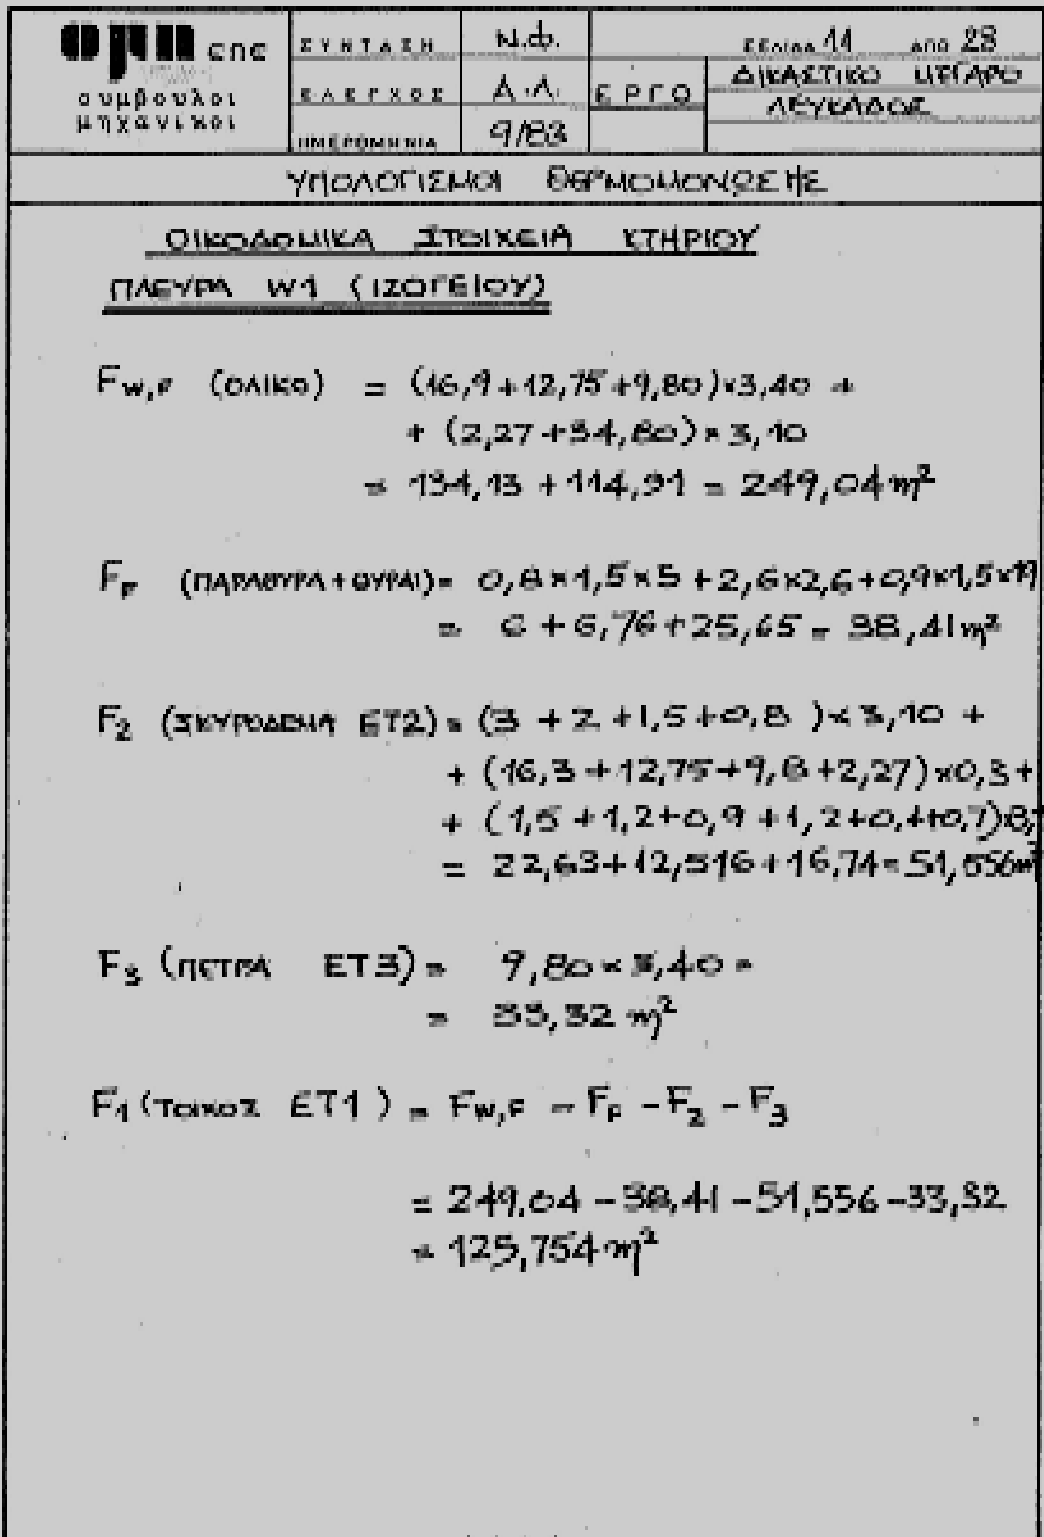 ΕΠΕ
σύμβουλοι
μηχανικοί
ΣΥΝΤΑΞΗ Ν.Φ.
ΕΛΕΓΧΟΣ Α.Λ.
ΗΜΕΡΟΜΗΝΙΑ 9/83
ΕΡΓΟ
ΣΕΛΙΔΑ 11 ΑΠΟ 28
ΔΙΚΑΣΤΙΚΟ ΜΕΓΑΡΟ
ΛΕΥΚΑΔΟΣ
ΥΠΟΛΟΓΙΣΜΟΙ ΘΕΡΜΟΜΟΝΩΣΕΗΣ
ΟΙΚΟΔΟΜΙΚΑ ΣΤΟΙΧΕΙΑ ΚΤΗΡΙΟΥ
ΠΛΕΥΡΑ W1 (ΙΣΟΓΕΙΟΥ)
F_W,F (ΟΛΙΚΟ) = (16,9+12,75+9,80)×3,40 +
+ (2,27+34,80)×3,10
= 134,13 + 114,91 = 249,04 m²
F_F (ΠΑΡΑΘΥΡΑ+ΘΥΡΑΙ)= 0,8×1,5×5+2,6×2,6+0,9×1,5×19
= 6 + 6,76 + 25,65 = 38,41 m²
F₂ (ΣΚΥΡΟΔΕΜΑ ΕΤ2)= (3 + 2 +1,5+0,8 )×3,10 +
+ (16,3+12,75+9,8+2,27)×0,3+
+ (1,5 +1,2+0,9 +1,2+0,4+0,7)
= 22,63+12,516+16,74=51,556m²
F₃ (ΠΕΤΡΑ ΕΤ3) = 9,80×3,40 =
= 33,32 m²
F₁ (ΤΟΙΧΟΣ ΕΤ1) = F_W,F − F_F − F₂ − F₃
= 249,04 −38,41 −51,556 −33,32
= 125,754 m²